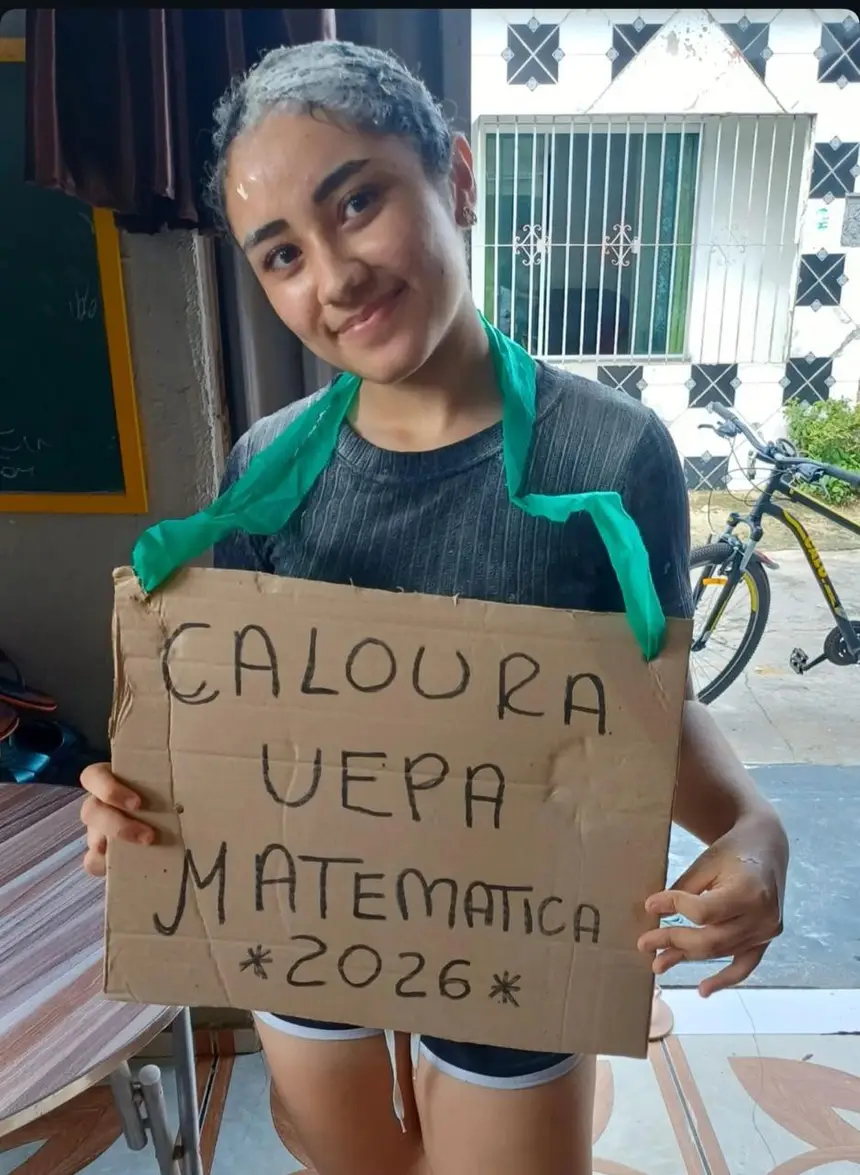 CALOURA
UEPA
MATEMATICA
*2026*